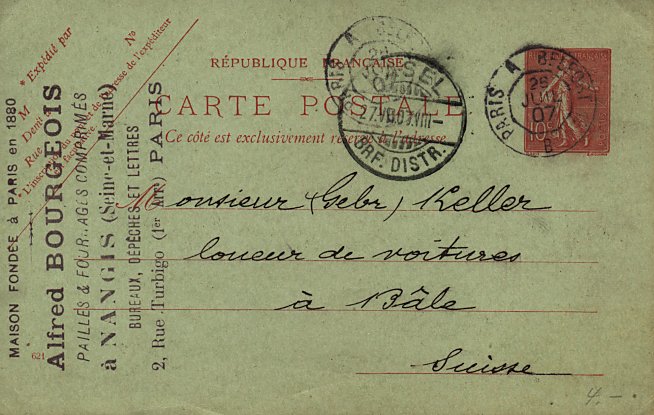 RÉPUBLIQUE FRANÇAISE
CARTE POSTALE
Ce côté est exclusivement réservé à l'adresse
* Expédié par
No
M
Demt à
Rue
* L'inscription du nom et de l'adresse de l'expéditeur
est facultative.
MAISON FONDÉE À PARIS en 1880
Alfred BOURGEOIS
PAILLES & FOURRAGES COMPRIMÉS
à NANGIS (Seine-et-Marne)
BUREAUX, DÉPÊCHES ET LETTRES
2, Rue Turbigo (1er Arrt) PARIS
621
PARIS A BELFORT
BASEL
27.VII.07.VIII-
BRF. DISTR.
PARIS A BELFORT
26
JUIL
07
B
10
Monsieur (Gebr) Keller
loueur de voitures
à Bâle
Suisse
4.-